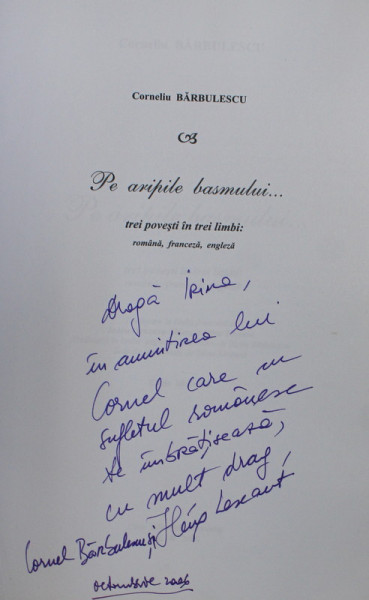 Corneliu BĂRBULESCU
Pe aripile basmului...
trei povești în trei limbi:
română, franceză, engleză
Dragă Irina,
în amintirea lui
Cornel care cu
sufletul românesc
te îmbrățișează,
cu mult drag,
Cornel Bărbulescu și
octombrie 2006